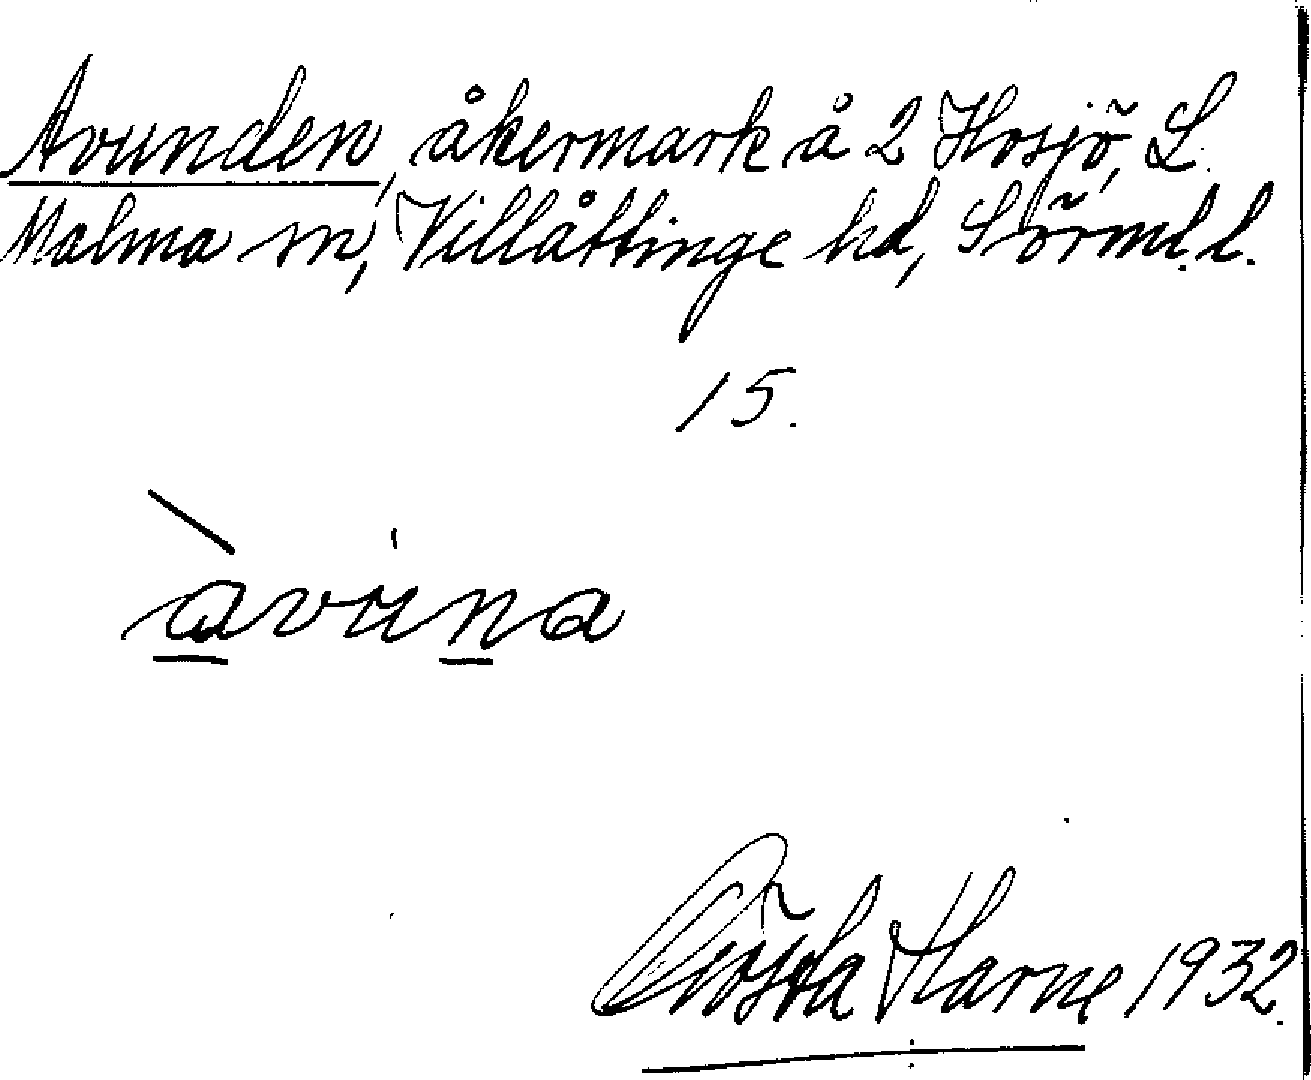 Avunden, åkermark å 2 Hosjö, L.
Malma sn, Villåttinge hd, Sörml. l.
15.
àvuna
Gösta Harne 1932.